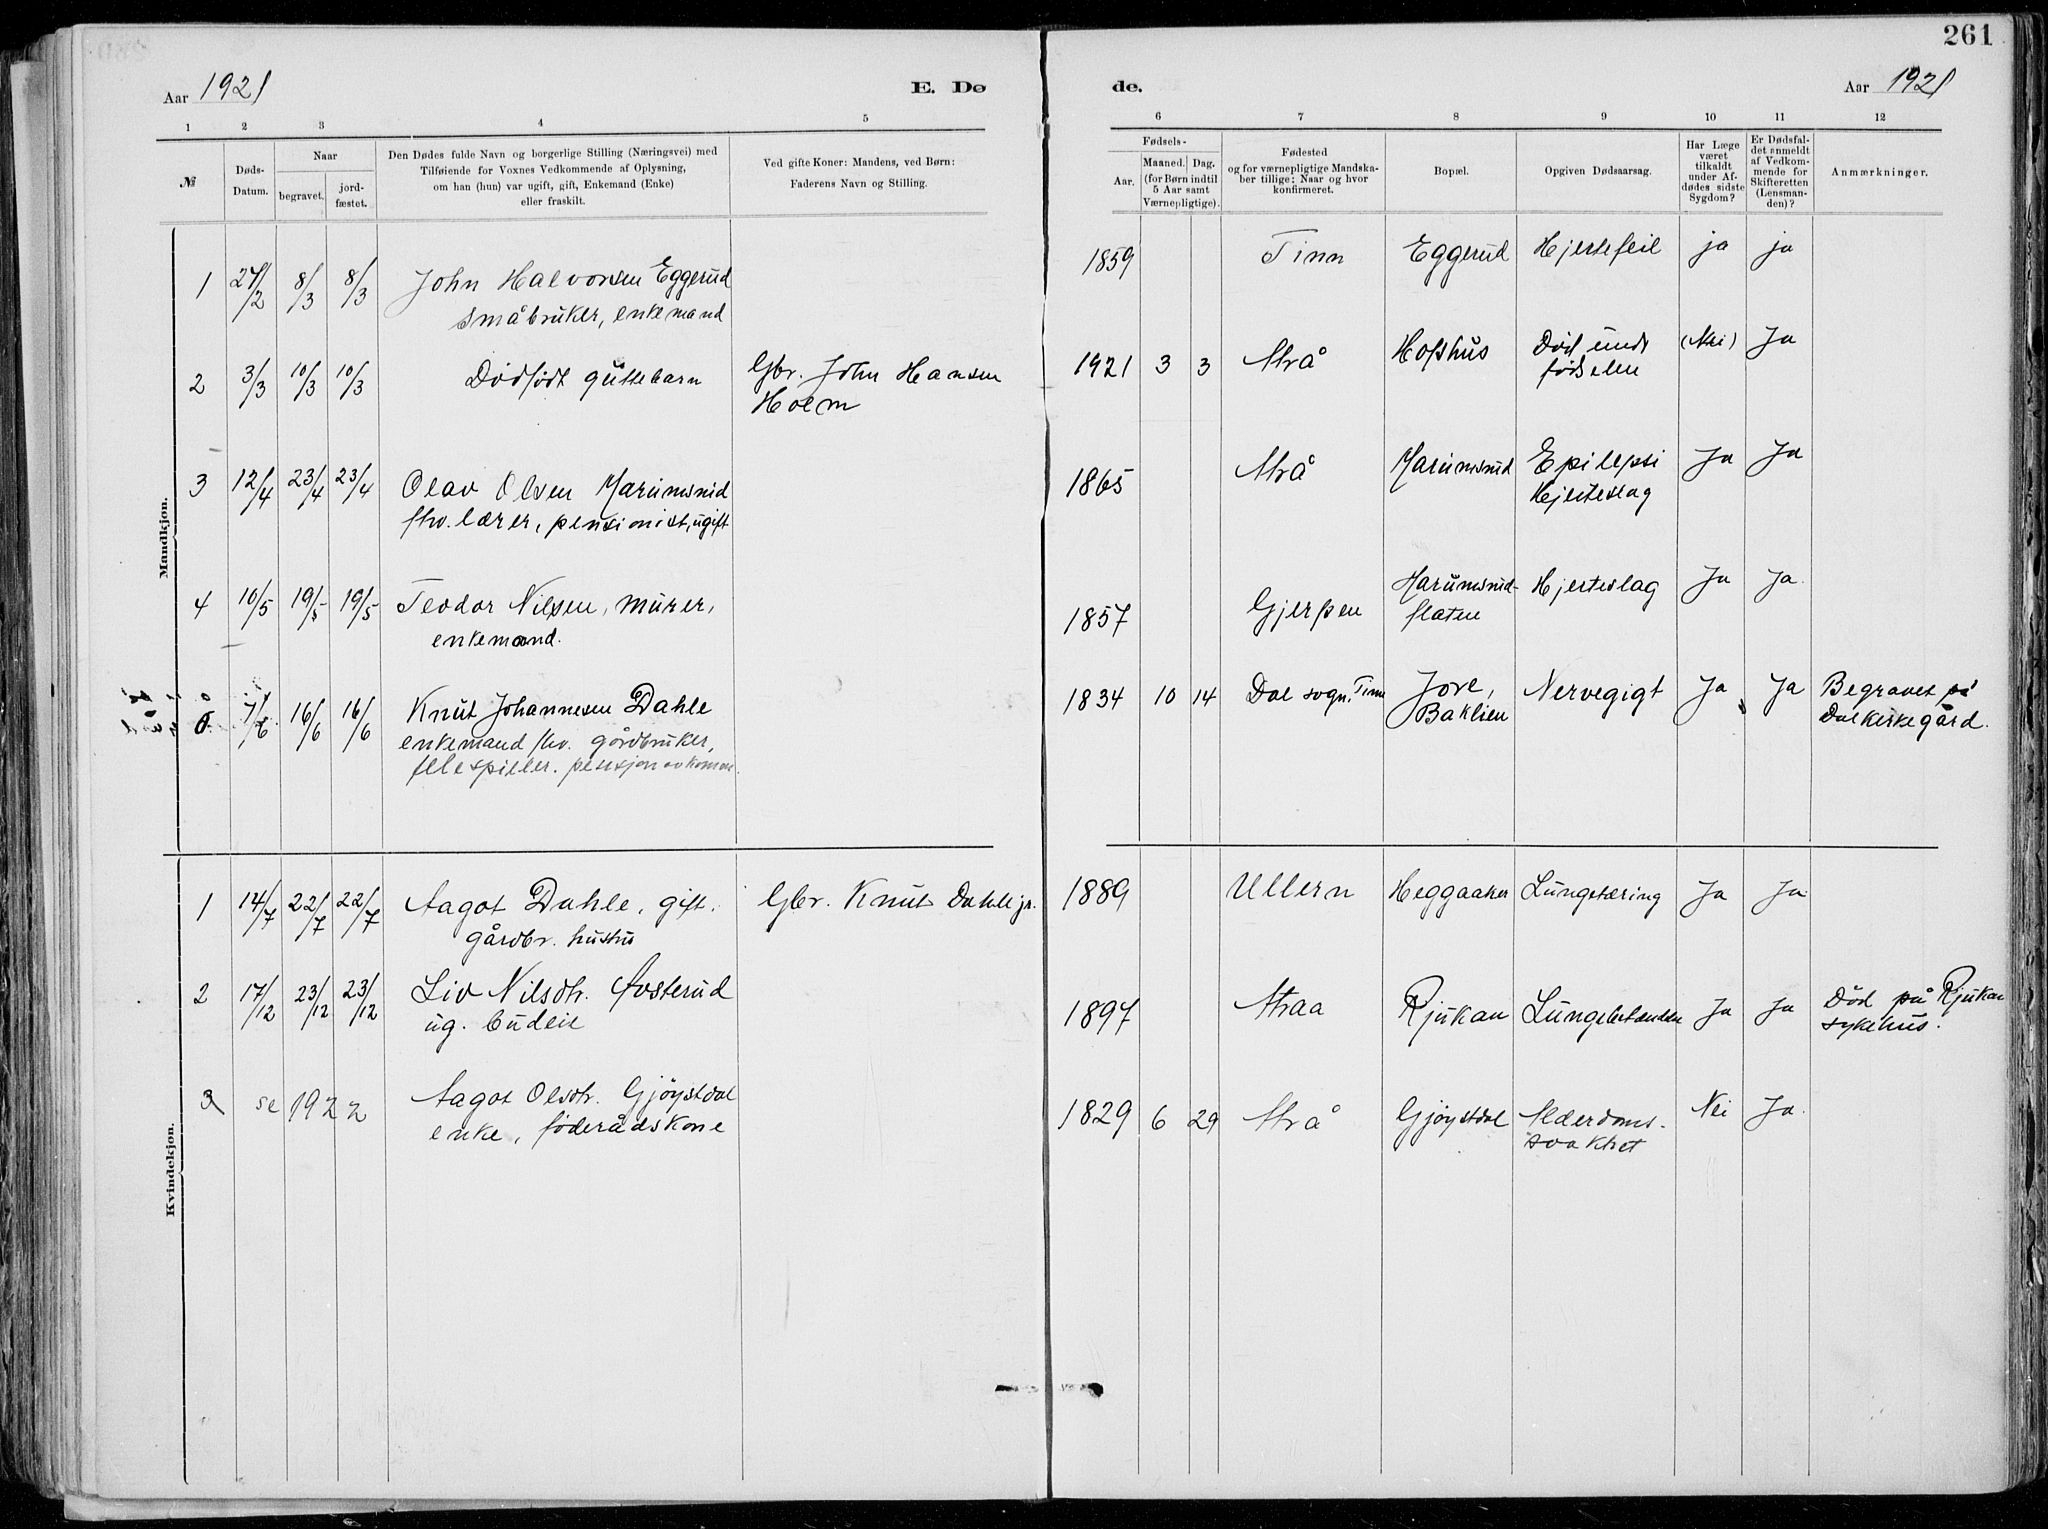 261
Aar 1921
E. Dø
de.
Aar 1921
1 2 3 4 5
6 7 8 9 10 11 12
№
Døds-
Datum.
Naar
begravet.
jord-
fæstet.
Den Dødes fulde Navn og borgerlige Stilling (Næringsvei) med
Tilføiende for Voxnes Vedkommende af Oplysning,
om han (hun) var ugift, gift, Enkemand (Enke)
eller fraskilt.
Ved gifte Koner: Mandens, ved Børn:
Faderens Navn og Stilling.
Fødsels-
Aar.
Maaned. Dag.
(for Børn indtil
5 Aar samt
Værnepligtige).
Fødested
og for værnepligtige Mandska-
ber tillige: Naar og hvor
konfirmeret.
Bopæl.
Opgiven Dødsaarsag.
Har Læge
været
tilkaldt
under Af-
dødes sidste
Sygdom?
Er Dødsfal-
det anmeldt
af Vedkom-
mende for
Skifteretten
(Lensman-
den)?
Anmærkninger.
Mandkjøn.
1 27/2 8/3 8/3 John Halvorsen Eggerud
småbruker, enkemand
1859 Tinn Eggerud Hjertefeil ja ja
2 3/3 10/3 10/3 Dødfødt guttebarn
Gbr. John Hansen
Holm
1921 3 3 Atrå Hofshus Død und
fødselen
(Nei) Ja
3 12/4 23/4 23/4 Olav Olsen Marumsrud
fhv. lærer, pensionist, ugift
1865 Atrå Marumsrud Epilepsi
Hjerteslag
Ja Ja
4 10/5 19/5 19/5 Teodor Nilsen, murer,
enkemand.
1857 Gjerpen Marumsrud-
flaten
Hjerteslag Ja Ja
5. 7/6 16/6 16/6 Knut Johannesen Dahle
enkemand fhv. gårdbruker,
felespiller.
1834 10 14 Dal sogn. Tinn Jore,
Baklien
Nervegigt Ja Ja Begravet på
Dal kirkegård.
Kvindekjøn.
1 14/7 22/7 22/7 Aagot Dahle, gift.
gårdbr. hustru
Gbr. Knut Dahle jr.
1889 Ullern Heggaaker Lungetæring Ja Ja
2 17/12 23/12 23/12 Liv Nilsdtr. Østerud
ug. budeie
1897 Atraa Rjukan Lungebetændelse Ja Ja Død på Rjukan
sykehus.
3 se 1922 Aagot Olsdtr. Gjøystdal
enke, føderådskone
1829 6 29 Atrå Gjøystdal Alderdoms-
svakhet
Nei Ja